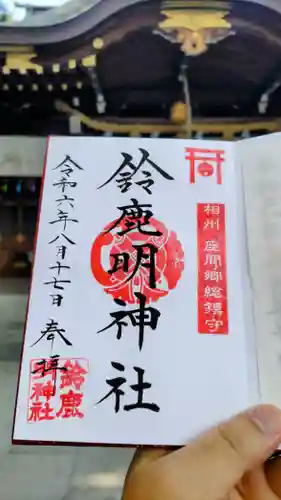 相州 座間郷総鎮守
鈴鹿明神社
令和六年八月十七日 奉拝
鈴鹿
神社